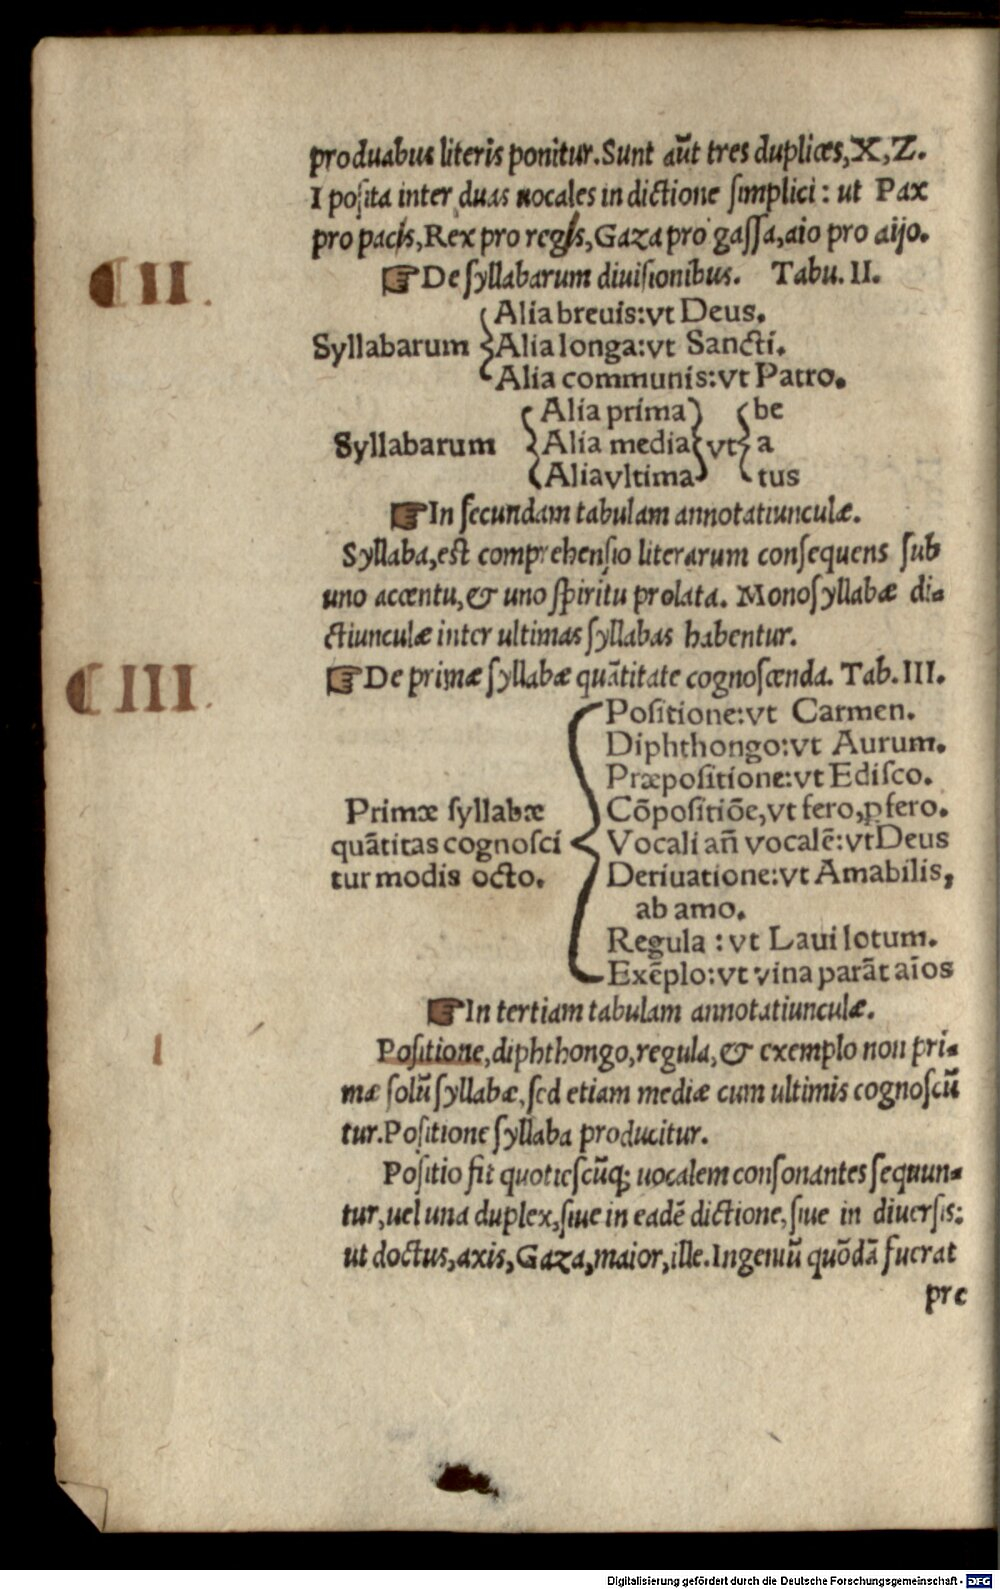 pro duabus literis ponitur. Sunt aũt tres duplices, X, Z.
I posita inter duas uocales in dictione simplici: ut Pax
pro pacis, Rex pro regis, Gaza pro gassa, aio pro aijo.
☞ De syllabarum diuisionibus. Tabu. II.
¶ II.
Alia breuis: vt Deus.
Syllabarum Alia longa: vt Sancti.
Alia communis: vt Patro.
Alia prima be
Syllabarum Alia media vt a
Alia vltima tus
☞ In secundam tabulam annotatiunculæ.
Syllaba, est comprehensio literarum consequens sub
uno accentu, & uno spiritu prolata. Monosyllabæ di-
ctiunculæ inter ultimas syllabas habentur.
☞ De primæ syllabæ quãtitate cognoscenda. Tab. III.
¶ III.
Positione: vt Carmen.
Diphthongo: vt Aurum.
Præpositione: vt Edisco.
Primæ syllabæ Cõpositiõe, vt fero, ꝓfero.
quãtitas cognosci Vocali añ vocalẽ: vt Deus
tur modis octo. Deriuatione: vt Amabilis,
ab amo.
Regula: vt Laui lotum.
Exẽplo: vt vina parãt aĩos
☞ In tertiam tabulam annotatiunculæ.
I
Positione, diphthongo, regula, & exemplo non pri-
mæ solũ syllabæ, sed etiam mediæ cum ultimis cognoscũ
tur. Positione syllaba producitur.
Positio fit quotiescũq; uocalem consonantes sequun-
tur, uel una duplex, siue in eadẽ dictione, siue in diuersis:
ut doctus, axis, Gaza, maior, ille. Ingeniũ quõdã fuerat
pre
Digitalisierung gefördert durch die Deutsche Forschungsgemeinschaft - DFG